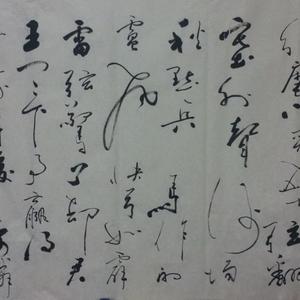 麾下炙五十弦翻
塞外聲沙場
秋點兵馬作的
盧飛快弓如霹
靂弦驚了卻君
王天下事贏得